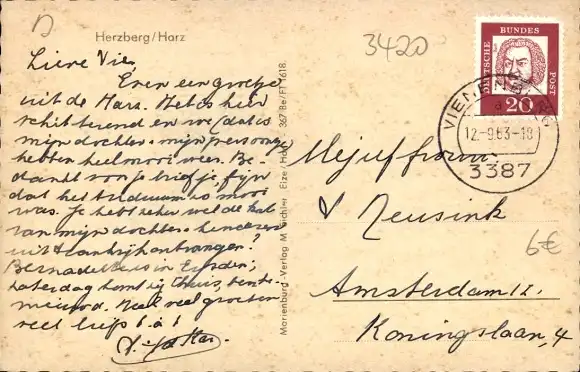 D
Herzberg/Harz
3420
Lieve Vie,
Even een groetje
uit de Harz. Het is hier
schitterend en we (dat is
mijn dochter + mijn persoontje)
hebben heel mooi weer. Be-
dankt voor je briefje, fijn
dat het triduum zo mooi
was. Je hebt zeker wel de kaart
van mijn dochter + kinderen
uit Frankrijk ontvangen?
Bernadette is in Eijsden;
zaterdag komt zij thuis,
Heel veel groeten
veel liefs
Marienburg-Verlag M. 367 Be/F1 1618
DEUTSCHE BUNDES POST
20
VIENENBURG
a
12.-9.63-18
3387
Mejuffrouw
V Neusink
6€
Amsterdam Z.
Koningslaan, 4